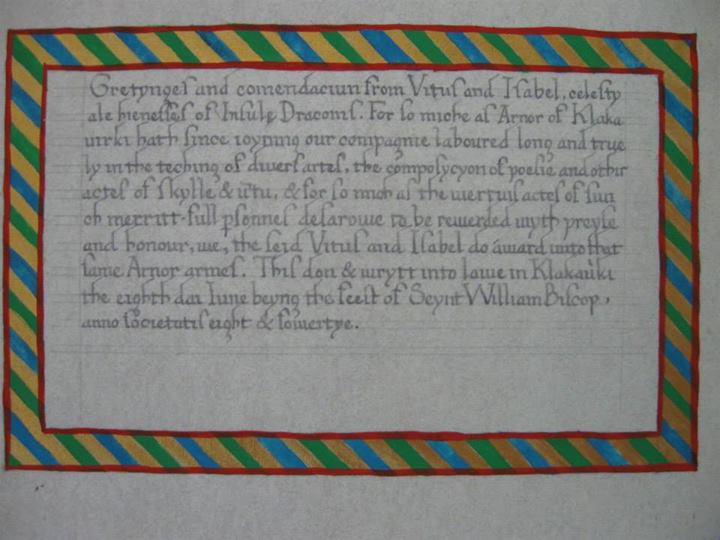 Gretynges and comendaciun from Vitus and Isabel, celesty
ale hienesses of Insulę Draconis. For so miche as Arnor of Klaka
virki hath since ioynyng our compagnie laboured long and true
ly in the teching of divers artes, the composycyon of poesie and othir
actes of skylle & utu, & for so mich as the vertuus actes of sun
ch merritt-full psonnes desarowe to be rewerded wyth preyse
and honour, we, the seid Vitus and Isabel do award unto that
same Arnor armes. This don & wrytt into lawe in Klakavirki
the eighth dai Iune beyng the feest of Seynt William Biscop,
anno societatis eight & fowertye.